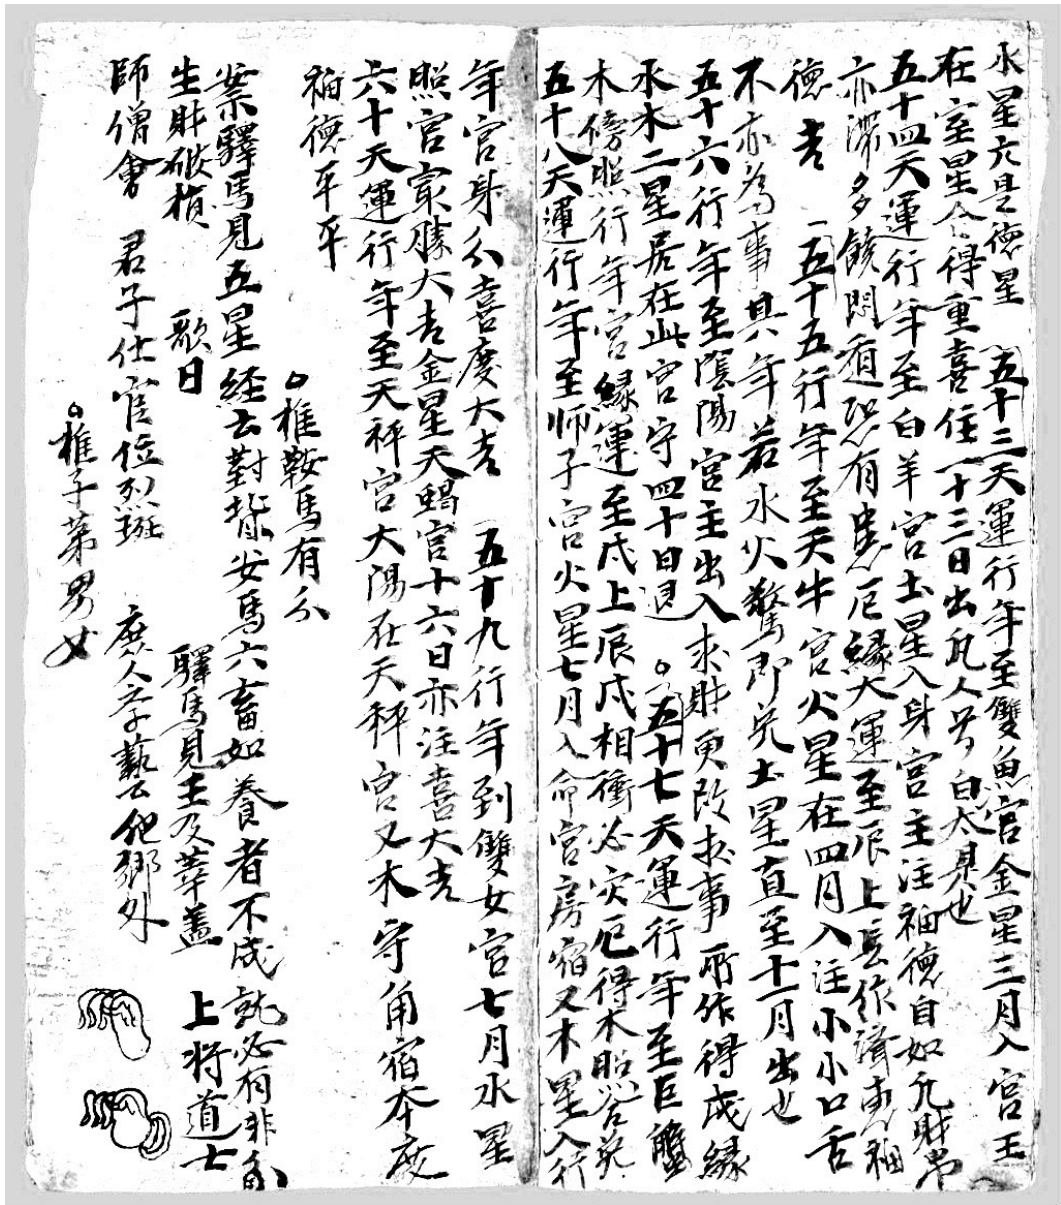 水星六是德星　五十三天運行年至雙魚宮金星三月入宮王
在室星合得重喜住一十三日出凡人号白太是也
五十四天運行年至白羊宮土星入身宮主注福德自如凡財帛
亦滯多饒悶道恐有患厄緣大運至辰上妄作濟患福
德吉　一五十五行年至天牛宮火星在四月入注小小口舌
不亦為事其年若水火驚即免土星直至十一月出也
五十六行年至陰陽宮主出入求財更改求事所作得成緣
水木二星居在此宮守四十日退　五十七天運行年至巨蟹
木傍照行年宮緣運至戌上辰戌相衝必灾厄得木照宮免
五十八天運行年至师子宮火星七月入命宮房宿又木星入行
年宮身分喜慶大吉　五十九行年到雙女宮七月水星
照宮宮最勝大吉金星天蝎宮十六日亦注喜大吉
六十天運行年至天秤宮大陽在天秤宮又木守角宿本度
福德平平
推鞍馬有分
案驛馬見五星経云對垛安馬六畜如養者不成就必有非分
生財破損　歌曰　驛馬見主及華蓋　上將道士
師僧會　君子仕官位烈班　庶人孝藝公他鄉外
推子弟男女